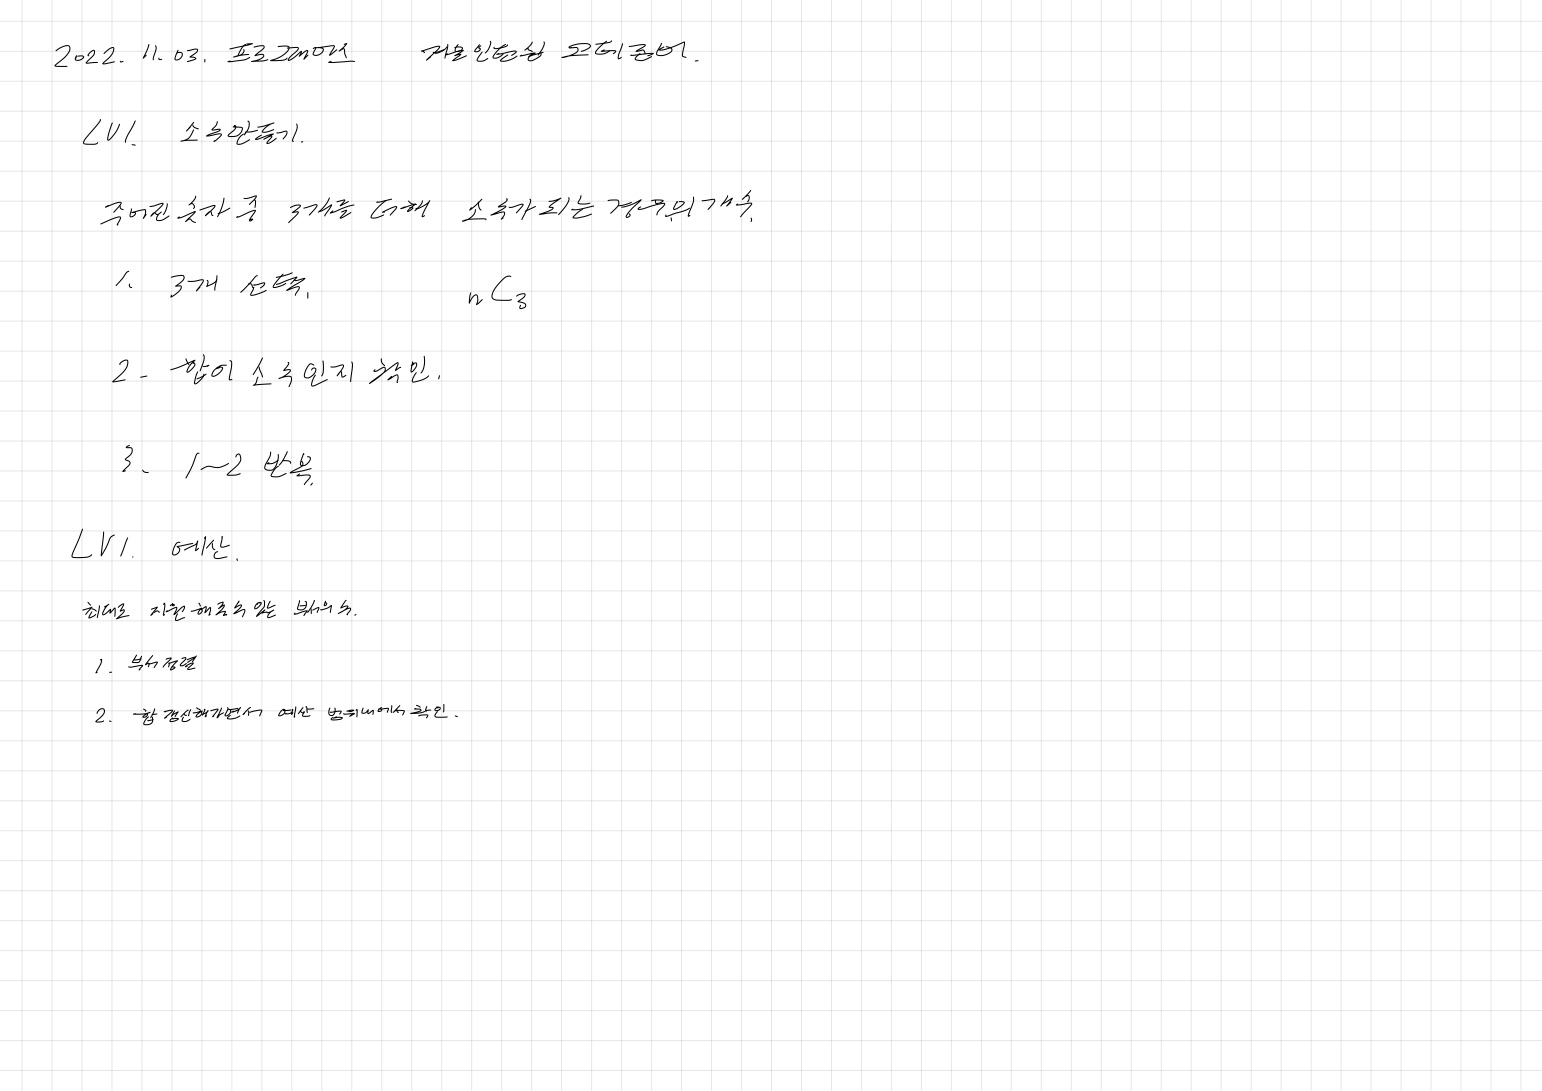 2022. 11. 03. 프로그래머스 겨울인턴십 코테준비.
LV1. 소수만들기.
주어진 숫자 중 3개를 더해 소수가 되는 경우의 개수.
1. 3개 선택. nC3
2- 합이 소수인지 확인.
3. 1~2 반복.
LV1. 예산.
최대로 지원해줄수 있는 부서의 수.
1. 부서정렬
2. 합 갱신해가면서 예산 범위내에서 확인.